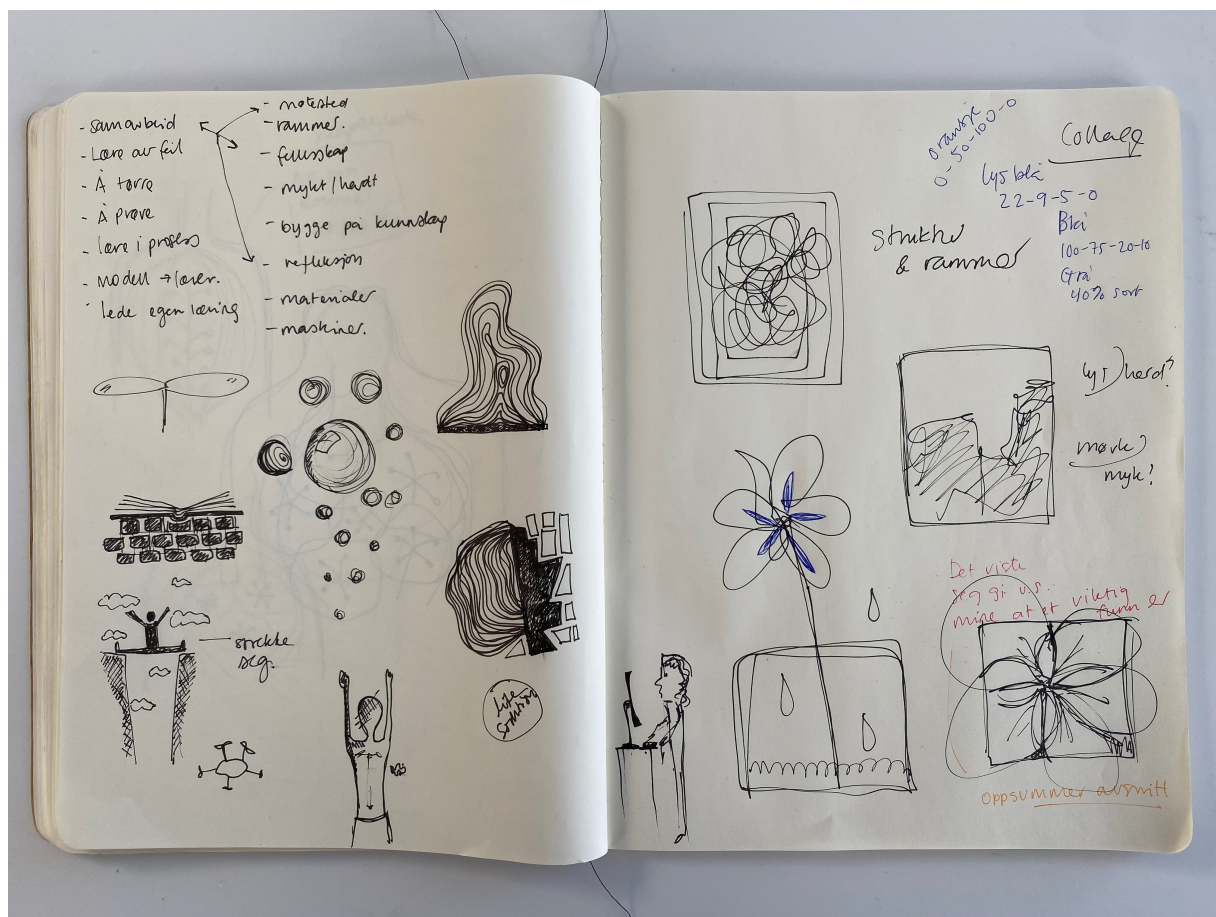 - samarbeid
- Lære av feil
- Å tørre
- Å prøve
- lære i prosess
- modell → lærer.
- lede egen læring
- møtested
- rammer.
- fellesskap
- mykt/hardt
- bygge på kunnskap
- refleksjon
- materialer
- maskiner.
strekke
seg.
Collage
oransje
0-50-100-0
lys blå
22-9-5-0
Blå
100-75-20-10
Grå
40% sort
& rammer
lyst/hard?
mørk?
myk?
Det viste
seg gi
mine at et viktig
funn er
oppsummer avsnitt